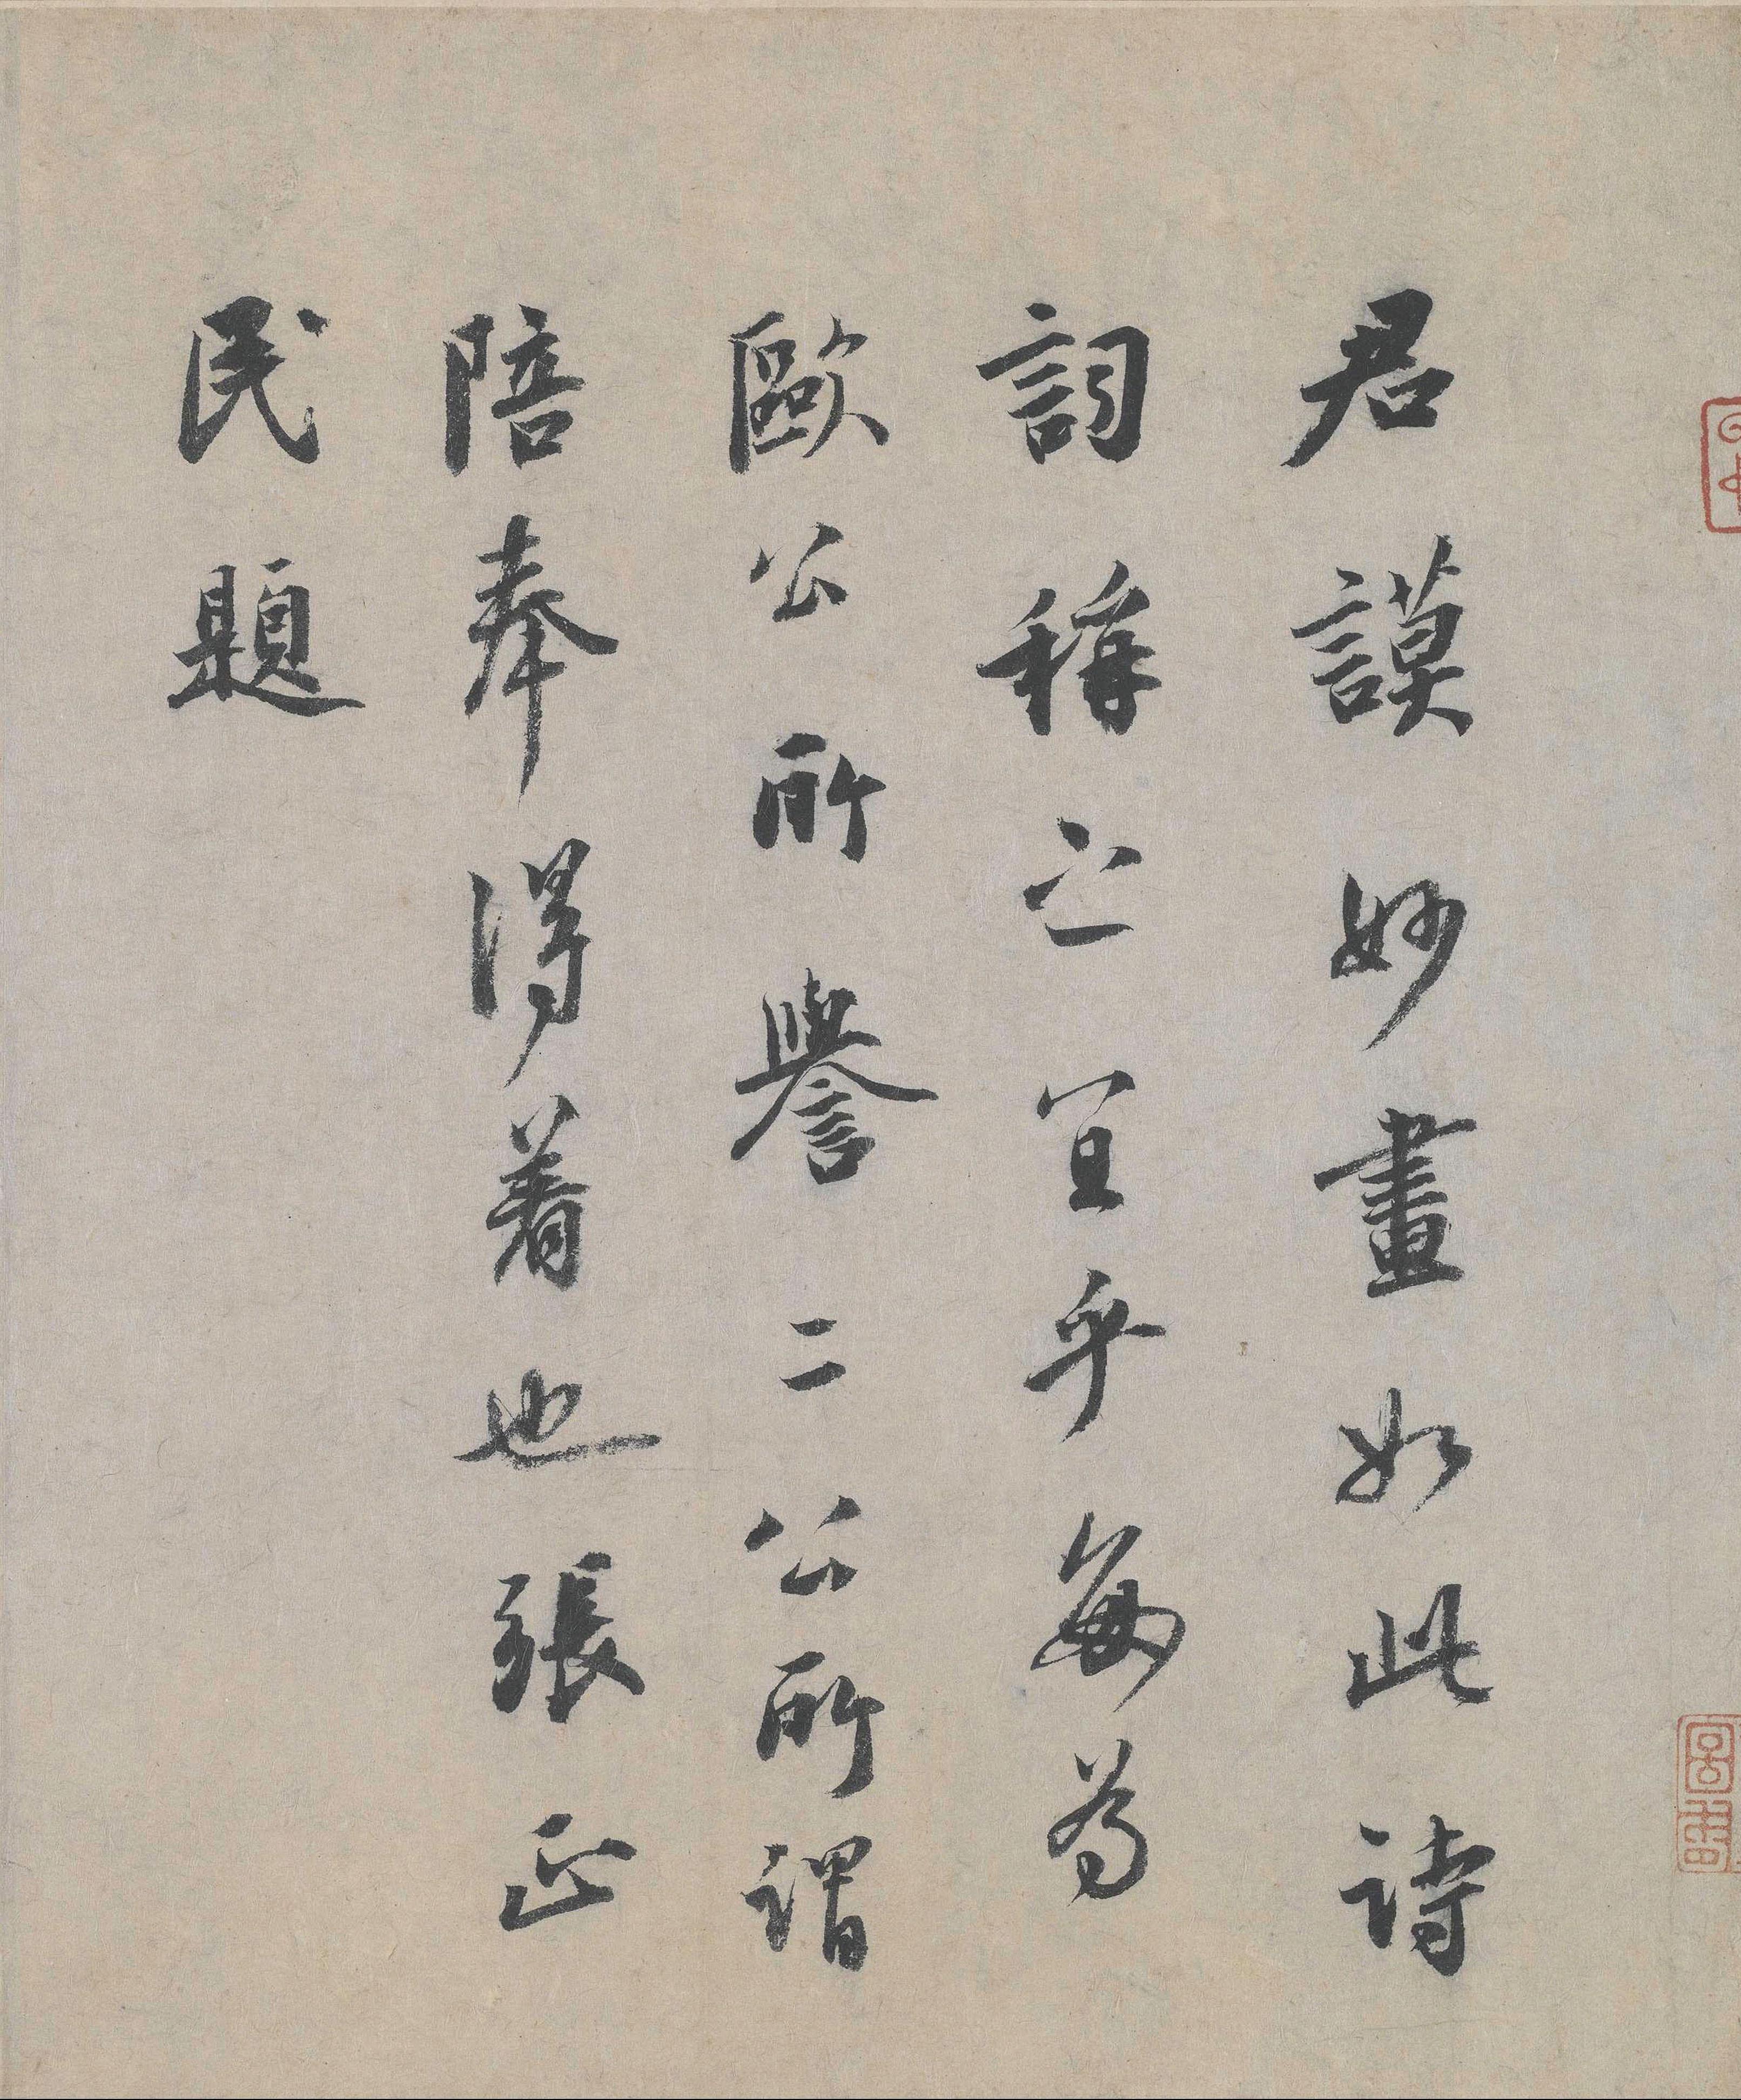 君謨妙畫如此詩
詞稱之宜乎每爲
歐公所譽二公所謂
陪奉得着也張正
民題